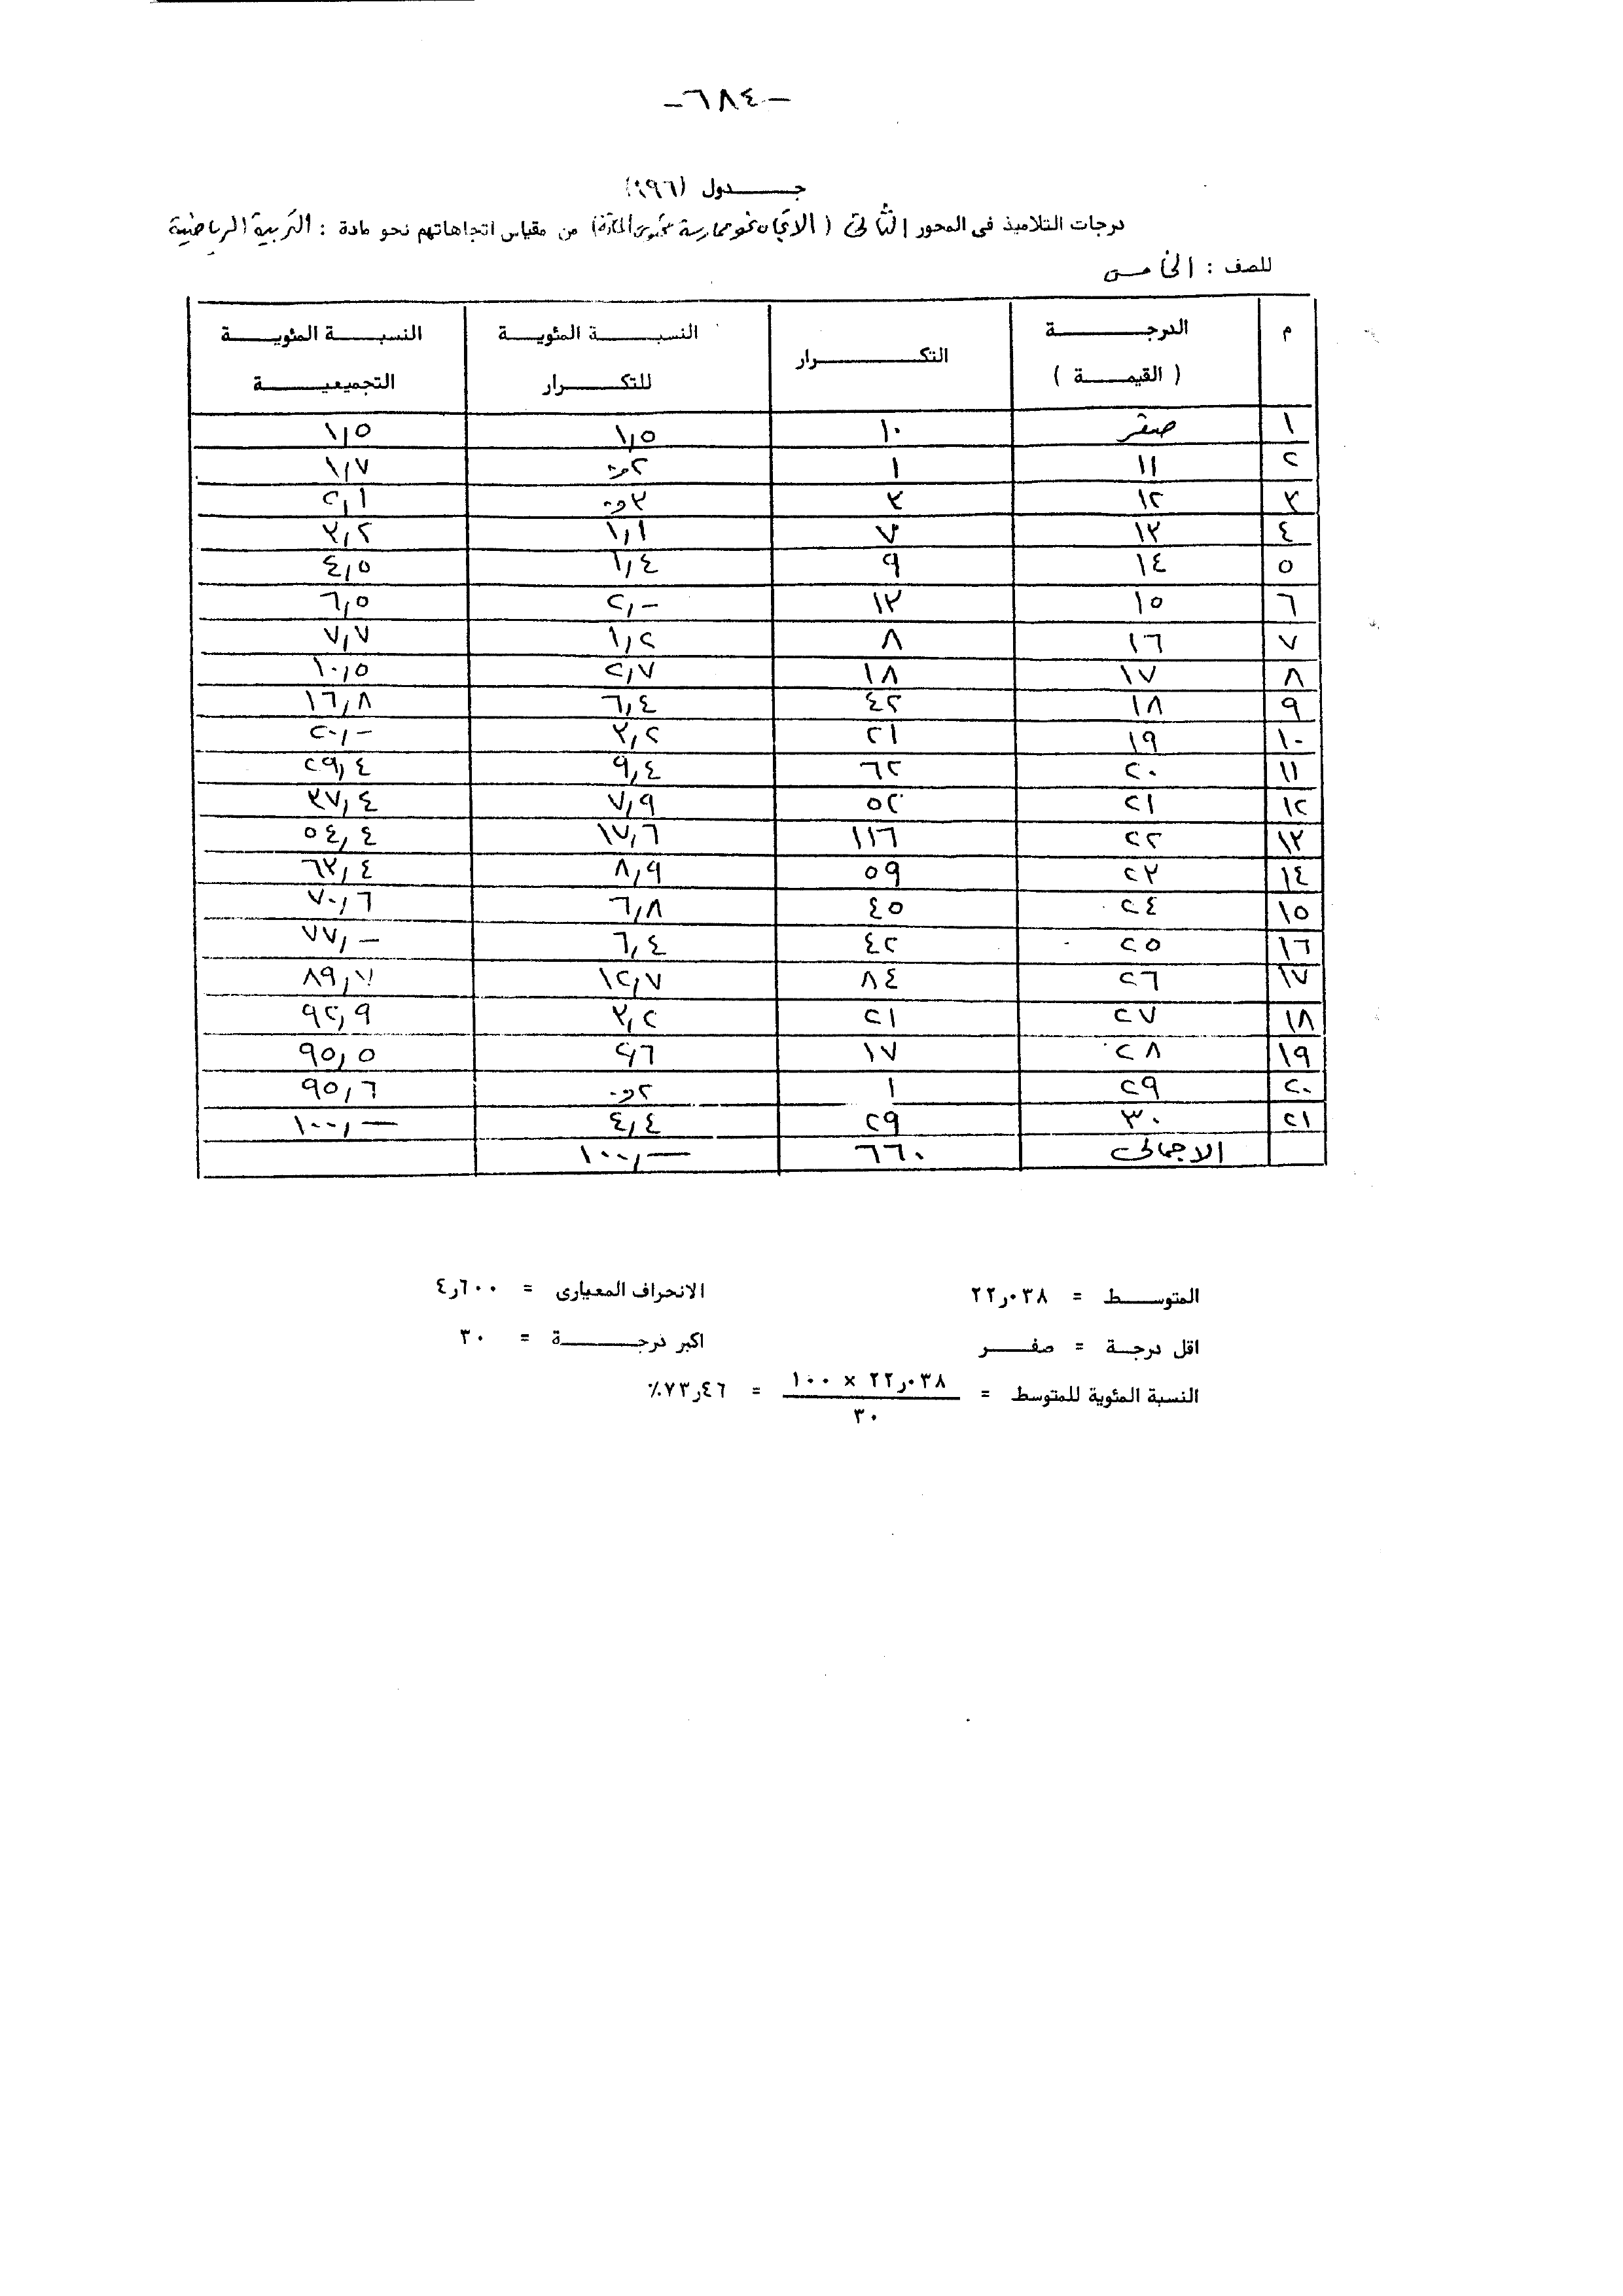 -٦٨٤-
جـــدول (١٩٦)
درجات التلاميذ فى المحور الثانى (الاتجاه نحو ممارسة محتوى المادة) من مقياس اتجاهاتهم نحو مادة : التربية الرياضية
للصف : الخامس
م الدرجـــة (القيمـــة) التكـــرار النسبـــة المئويـــة للتكـــرار النسبـــة المئويـــة التجميعيـــة
١ صفر ١٠ ١,٥ ١,٥
٢ ١١ ١ ٠,٢ ١,٧
٣ ١٢ ٣ ٠,٣ ٢,١
٤ ١٣ ٧ ١,١ ٣,٢
٥ ١٤ ٩ ١,٤ ٤,٥
٦ ١٥ ١٣ ٢,- ٦,٥
٧ ١٦ ٨ ١,٢ ٧,٧
٨ ١٧ ١٨ ٢,٧ ١٠,٥
٩ ١٨ ٤٢ ٦,٤ ١٦,٨
١٠ ١٩ ٢١ ٣,٢ ٢٠,-
١١ ٢٠ ٦٢ ٩,٤ ٢٩,٤
١٢ ٢١ ٥٢ ٧,٩ ٣٧,٤
١٣ ٢٢ ١١٦ ١٧,٦ ٥٤,٤
١٤ ٢٣ ٥٩ ٨,٩ ٦٣,٤
١٥ ٢٤ ٤٥ ٦,٨ ٧٠,٦
١٦ ٢٥ ٤٢ ٦,٤ ٧٧,-
١٧ ٢٦ ٨٤ ١٢,٧ ٨٩,٧
١٨ ٢٧ ٢١ ٣,٢ ٩٢,٩
١٩ ٢٨ ١٧ ٢,٦ ٩٥,٥
٢٠ ٢٩ ١ ٠,٢ ٩٥,٦
٢١ ٣٠ ٢٩ ٤,٤ ١٠٠,-
الاجمالى ٦٦٠ ١٠٠,-
المتوســـط = ٢٢٫٠٣٨ الانحراف المعيارى = ٤٫٦٠٠
اقل درجـــة = صفـــر اكبر درجـــة = ٣٠
النسبة المئوية للمتوسط = ٢٢٫٠٣٨ × ١٠٠ / ٣٠ = ٧٣٫٤٦٪